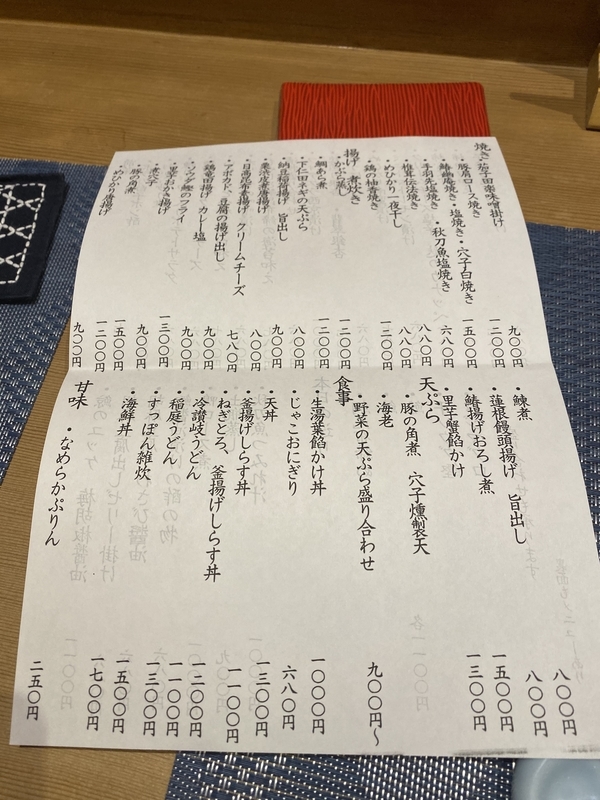 焼き
・茄子田楽味噌掛け 九〇〇円
・豚肩ロース焼き 一二〇〇円
・鰆幽庵焼き・塩焼き・穴子白焼き 一五〇〇円
・手羽先塩焼き・秋刀魚塩焼き 六八〇円
・椎茸伝法焼き 八八〇円
・めひかり一夜干し 八八〇円
・鶏の柚香焼き 一二〇〇円
揚げ・煮炊き
・かぶら蒸し 一二〇〇円
・鯛あら煮 一二〇〇円
・下仁田ネギの天ぷら 八〇〇円
・納豆稲荷揚げ 旨出し 九〇〇円
・栗渋皮煮揚げ 八〇〇円
・日高昆布煮揚げ クリームチーズ 七八〇円
・アボカド、豆腐の揚げ出し 九〇〇円
・鶏竜田揚げ カレー塩 九〇〇円
・ソウダ鰹のフライ 一三〇〇円
・里芋おかき揚げ 九〇〇円
・煮穴子 一五〇〇円
・豚の角煮 一二〇〇円
・めひかり唐揚げ 九〇〇円
・鰊煮 八〇〇円
・蓮根饅頭揚げ 旨出し 八〇〇円
・鰆揚げおろし煮 一五〇〇円
・里芋蟹餡かけ 一三〇〇円
天ぷら
・豚の角煮、穴子燻製天
・海老
・野菜の天ぷら盛り合わせ 九〇〇円～
食事
・生湯葉餡かけ丼 一〇〇〇円
・じゃこおにぎり 六八〇円
・天丼 一三〇〇円
・釜揚げしらす丼 一一〇〇円
・ねぎとろ、釜揚げしらす丼 一二〇〇円
・冷讃岐うどん 一一〇〇円
・稲庭うどん 一三〇〇円
・すっぽん雑炊 一五〇〇円
・海鮮丼 一七〇〇円
甘味
・なめらかぷりん 二五〇円